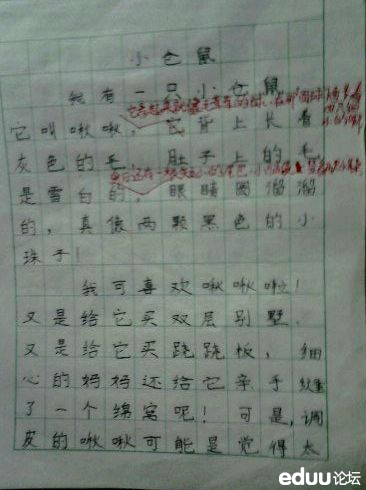 小仓鼠
我有一只小仓鼠
它叫啾啾，它背上长着
灰色的毛，肚子上的毛
是雪白的，眼睛圆溜溜
的，真像两颗黑色的小
珠子！
我可喜欢啾啾啦！
又是给它买双层别墅，
又是给它买跷跷板，细
心的妈妈还给它亲手缝
了一个绵窝呢！可是，调
皮的啾啾可能是觉得太
eduu论坛